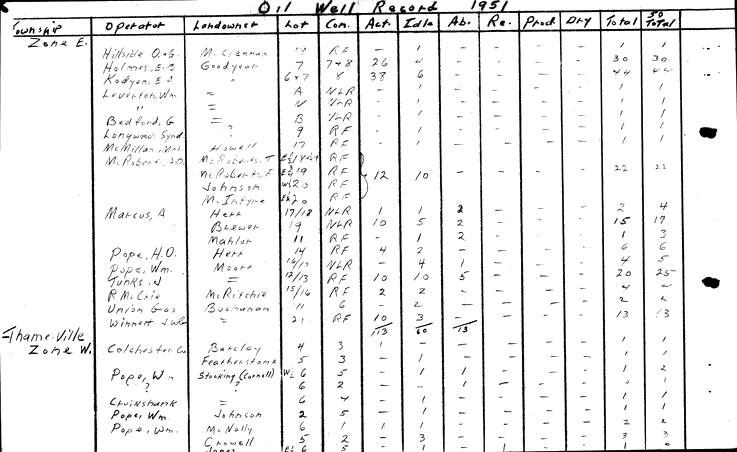 Oil Well Record 1951
Township Operator Landowner Lot Con. Act. Idle Ab. Re. Prod. Dry Total 50 Total
Zone E.
Hillside O.&G. McClennan RF - 1 - - - - 1 1
Holmes, E.B. Goodyear 7 7+8 26 - - - - 30 30
Kodyen, E.C " 6+7 8 38 6 - - - - 44 44
Leverton, Wm = A NLR - 1 - - - - 1 1
" = N NLR - 1 - - - - 1 1
Bedford, G = B NLR - 1 - - - - 1 1
Longwoods Synd. ? 9 RF - 1 - - - - 1 1
McMillan, Mrs. Howell 17 RF - 1 - - - - 1 1
McRoberts, J.O. McRoberts, T RF
McRoberts, F E½19 RF 12 10 - - - - 22 22
Johnson W½20 RF
McIntyre E½20 RF
Marcus, A Herr 17/18 NLR 1 1 2 - - - 2 4
Brewer 19 NLR 10 5 2 - - - 15 17
Mahlor 11 RF - 1 2 - - - 1 3
Pope, H.O. Herr 14 RF 4 2 - - - - 6 6
Pope, Wm. Moore 16/17 NLR - 4 1 - - - 4 5
Tunks, J = 12/13 RF 10 10 5 - - - 20 25
R McCrie McRitchie 15/16 RF 2 2 - - - - 4
Union Gas Buchanan 11 6 - 2 - - - - 2 2
Winnett J = 21 RF 10 3 - - - - 13 13
113 60 13
Thameville
Zone W.
Colchester Co. Barclay 4 3 1 - - - - - 1 1
Featherstone 5 3 - 1 - - - - 1 1
Pope, Wm Stocking (Cornell) W½ 6 5 - 1 1 - - - 1 2
? ? 6 2 - - 1 - - - 0 1
Cruikshank = 6 4 - 1 - - - - 1 1
Pope, Wm. Johnson 2 5 - 1 - - - - 1 1
Pope, Wm. McNally 6 1 1 1 - - - - 2 2
Crowell 5 2 - 3 - - - - 3 3
Jones E½ 6 5 - 1 - 1 - - 1